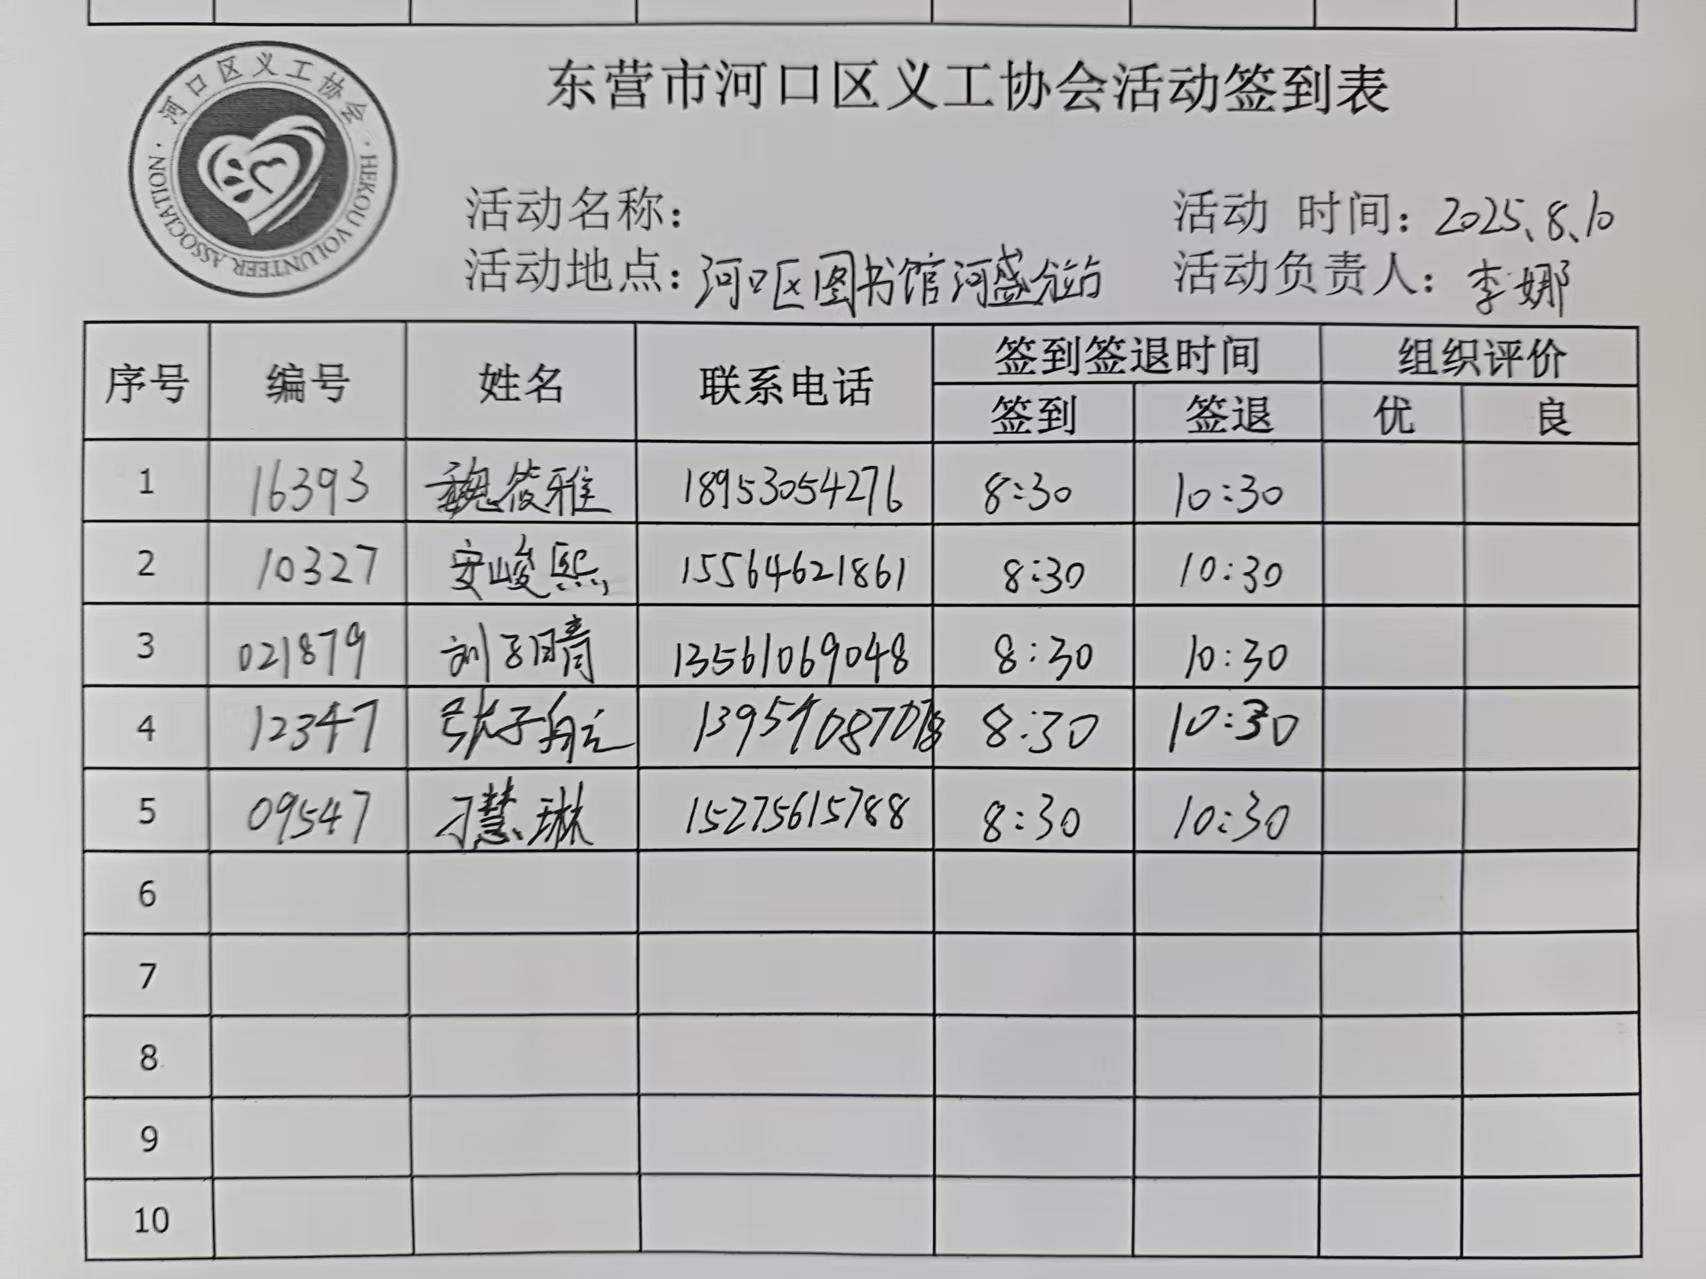 河口区义工协会
HEKOU VOLUNTEER ASSOCIATION
东营市河口区义工协会活动签到表
活动名称： 活动 时间：2025、8、10
活动地点：河口区图书馆河盛分站 活动负责人：李娜
序号 编号 姓名 联系电话 签到签退时间 组织评价
签到 签退 优 良
1 16393 魏筱雅 18953054276 8:30 10:30
2 10327 安峻熙 15564621861 8:30 10:30
3 021879 刘子晴 13561069048 8:30 10:30
4 12347 张子 8:30 10:30
5 09547 刁慧琳 15275615788 8:30 10:30
6
7
8
9
10